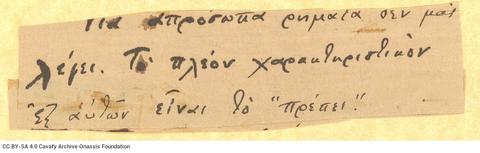 Για απρόσωπα ρήματα δεν μας
λέγει. Τὸ πλέον χαρακτηριστικὸν
ἐξ αὐτῶν εἶναι τὸ "πρέπει".
CC BY-SA 4.0 Cavafy Archive Onassis Foundation